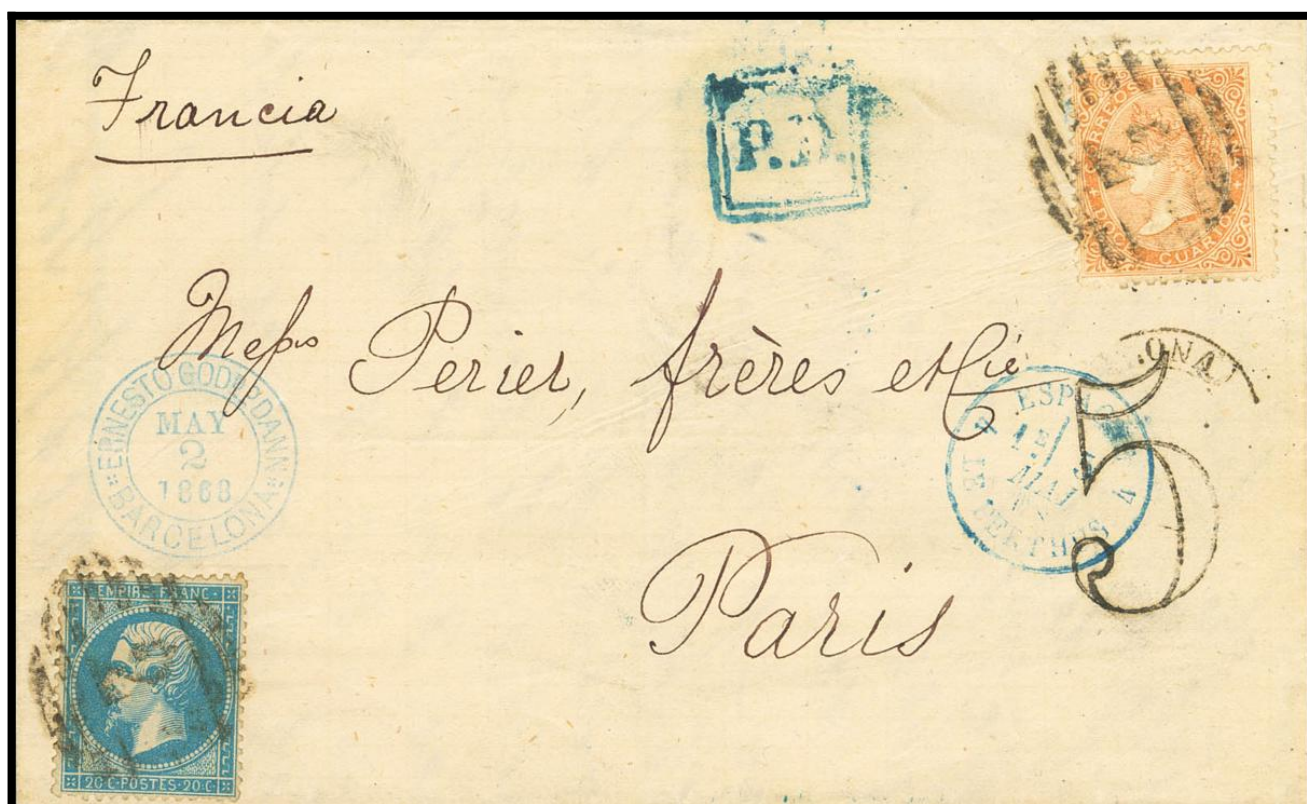 Francia
P.D.
CORREOS DE
CUARTOS
Mess Perier, frères et Cie
ERNESTO GODORDANN
MAY
2
1868
BARCELONA
ESPAGNE
MAI
LE PERTHUS
5
Paris
EMPIRE FRANC
20 C POSTES 20 C